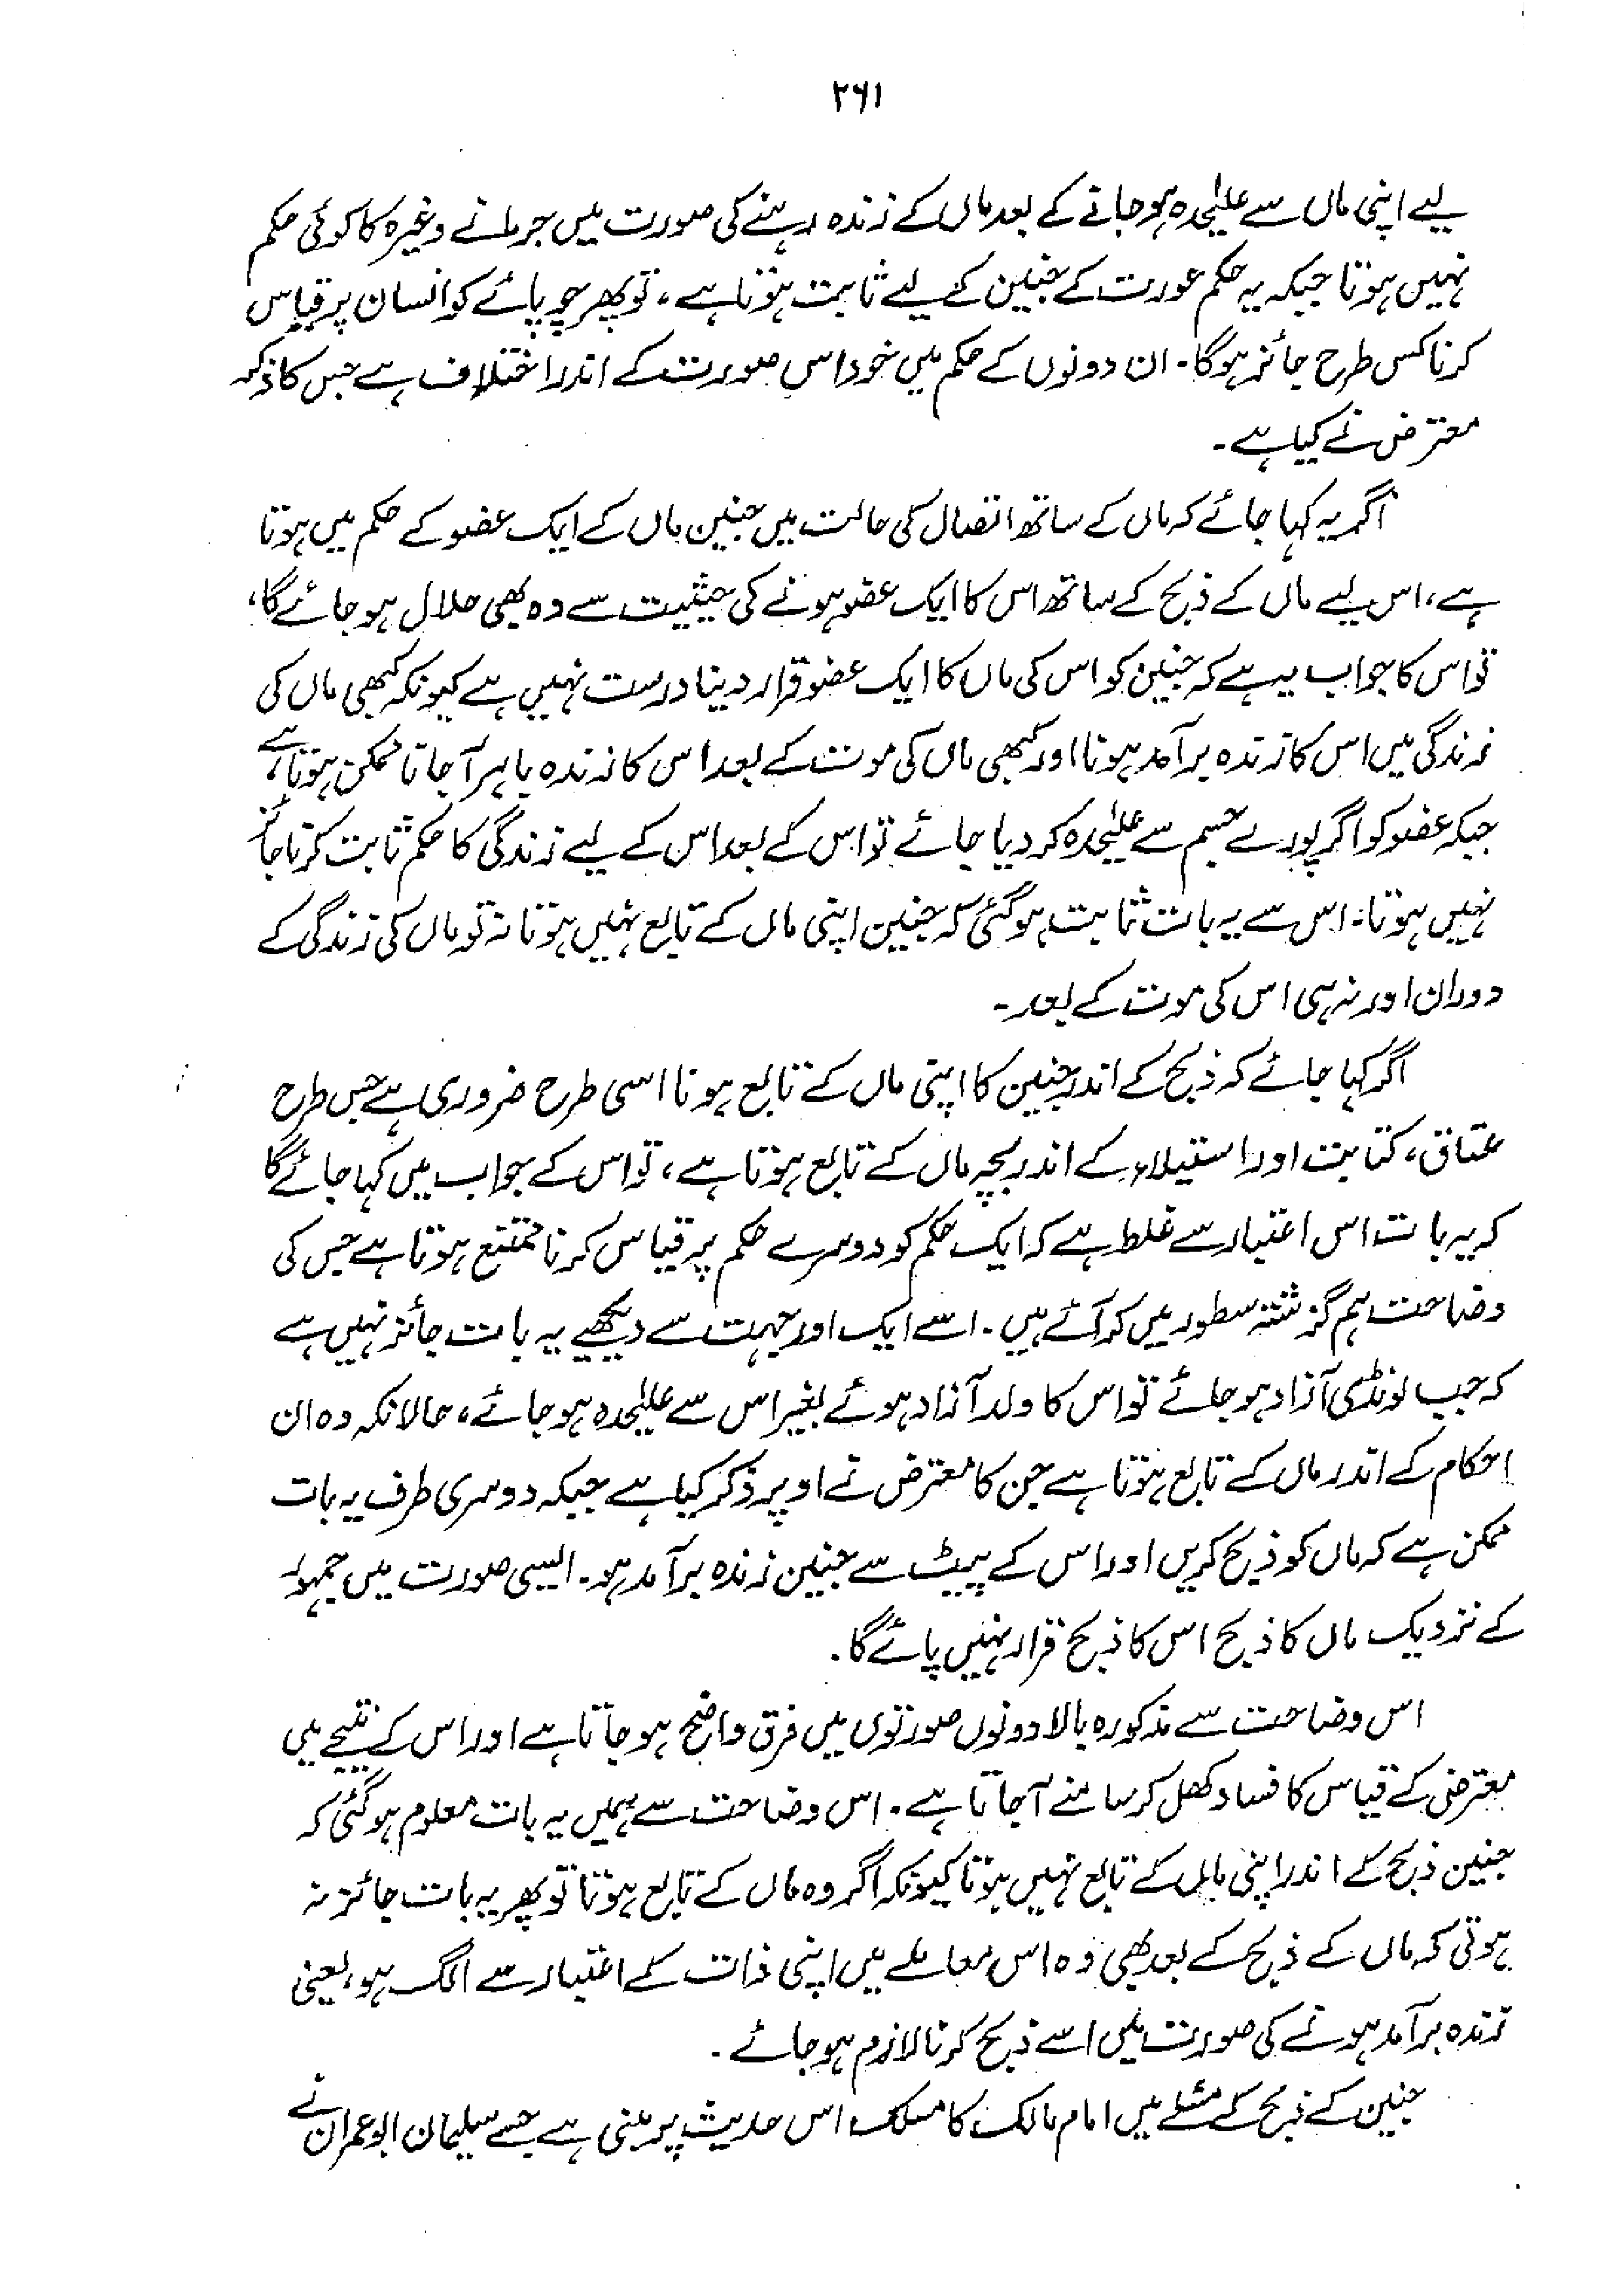 ۲۶۱
لیے اپنی ماں سے علیٰحدہ ہو جانے کے بعد ماں کے زندہ رہنے کی صورت میں جرمانے وغیرہ کا کوئی حکم
نہیں ہوتا جبکہ یہ حکم عورت کے جنین کے لیے ثابت ہوتا ہے، تو پھر چوپائے کو انسان پر قیاس
کرنا کس طرح جائز ہوگا۔ ان دونوں کے حکم میں خود اس صورت کے اندر اختلاف ہے جس کا ذکر
معترض نے کیا ہے۔
اگر یہ کہا جائے کہ ماں کے ساتھ اتصال کی حالت میں جنین ماں کے ایک عضو کے حکم میں ہوتا
ہے، اس لیے ماں کے ذبح کے ساتھ اس کا ایک عضو ہونے کی حیثیت سے وہ بھی حلال ہو جائے گا،
تو اس کا جواب یہ ہے کہ جنین کو اس کی ماں کا ایک عضو قرار دینا درست نہیں ہے کیونکہ کبھی ماں کی
زندگی میں اس کا زندہ برآمد ہونا اور کبھی ماں کی موت کے بعد اس کا زندہ باہر آ جانا ممکن ہوتا ہے،
جبکہ عضو کو اگر پورے جسم سے علیٰحدہ کر دیا جائے تو اس کے بعد اس کے لیے زندگی کا حکم ثابت کرنا جائز
نہیں ہوتا۔ اس سے یہ بات ثابت ہوگئی کہ جنین اپنی ماں کے تابع نہیں ہوتا نہ تو ماں کی زندگی کے
دوران اور نہ ہی اس کی موت کے بعد۔
اگر کہا جائے کہ ذبح کے اندر جنین کا اپنی ماں کے تابع ہونا اسی طرح ضروری ہے جس طرح
عتاق، کتابت اور استیلاء کے اندر بچہ ماں کے تابع ہوتا ہے، تو اس کے جواب میں کہا جائے گا
کہ یہ بات اس اعتبار سے غلط ہے کہ ایک حکم کو دوسرے حکم پر قیاس کرنا ممتنع ہوتا ہے جس کی
وضاحت ہم گزشتہ سطور میں کر آئے ہیں۔ اسے ایک اور جہت سے دیکھیے یہ بات جائز نہیں ہے
کہ جب لونڈی آزاد ہو جائے تو اس کا ولد آزاد ہوئے بغیر اس سے علیٰحدہ ہو جائے، حالانکہ وہ ان
احکام کے اندر ماں کے تابع ہوتا ہے جن کا معترض نے اوپر ذکر کیا ہے جبکہ دوسری طرف یہ بات
ممکن ہے کہ ماں کو ذبح کریں اور اس کے پیٹ سے جنین زندہ برآمد ہو۔ ایسی صورت میں جمہور
کے نزدیک ماں کا ذبح اس کا ذبح قرار نہیں پائے گا۔
اس وضاحت سے مذکورہ بالا دونوں صورتوں میں فرق واضح ہو جاتا ہے اور اس کے نتیجے میں
معترض کے قیاس کا فساد کھل کر سامنے آ جاتا ہے۔ اس وضاحت سے ہمیں یہ بات معلوم ہوگئی کہ
جنین ذبح کے اندر اپنی ماں کے تابع نہیں ہوتا کیونکہ اگر وہ ماں کے تابع ہوتا تو پھر یہ بات جائز نہ
ہوتی کہ ماں کے ذبح کے بعد بھی وہ اس معاملے میں اپنی ذات کے اعتبار سے الگ ہو، یعنی
زندہ برآمد ہونے کی صورت میں اسے ذبح کرنا لازم ہو جائے۔
جنین کے ذبح کے مسئلے میں امام مالک کا مسلک اس حدیث پر مبنی ہے جسے سلیمان ابوعمران نے